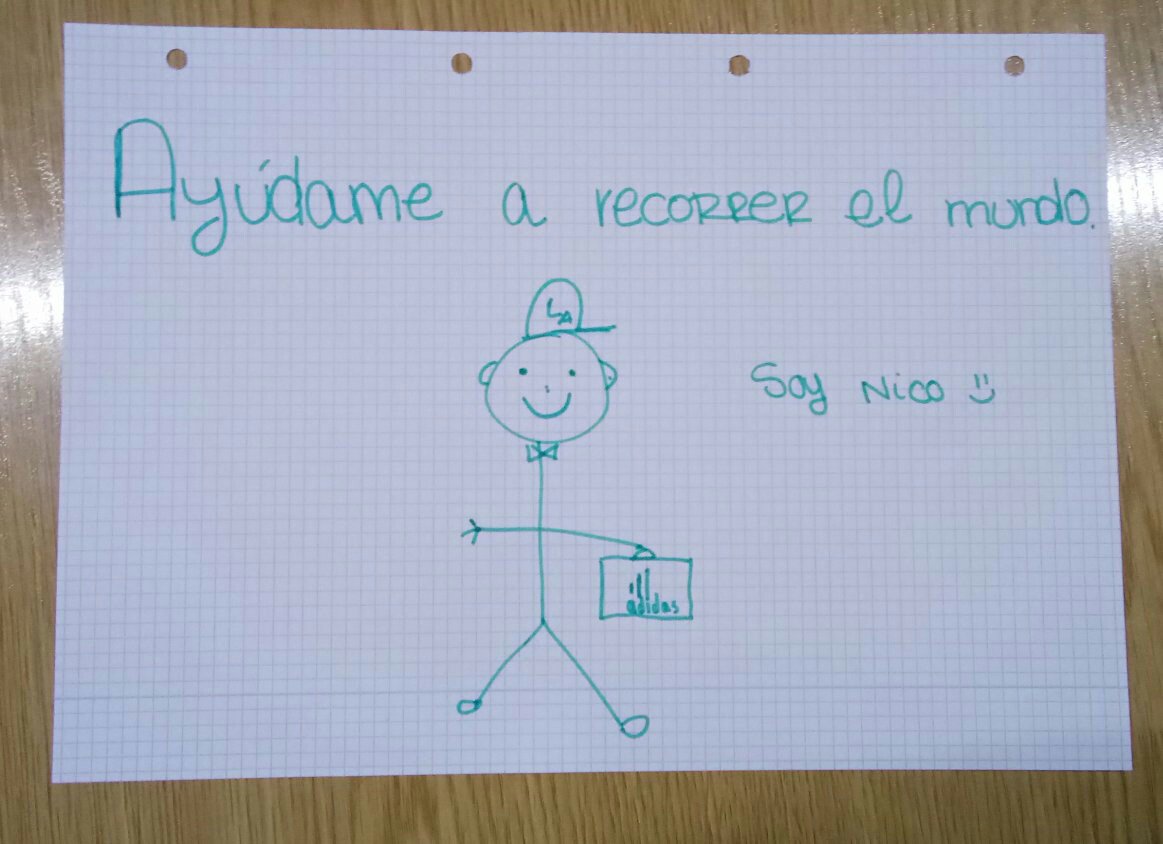 Ayúdame a recorrer el mundo.
LA
Soy Nico :)
adidas